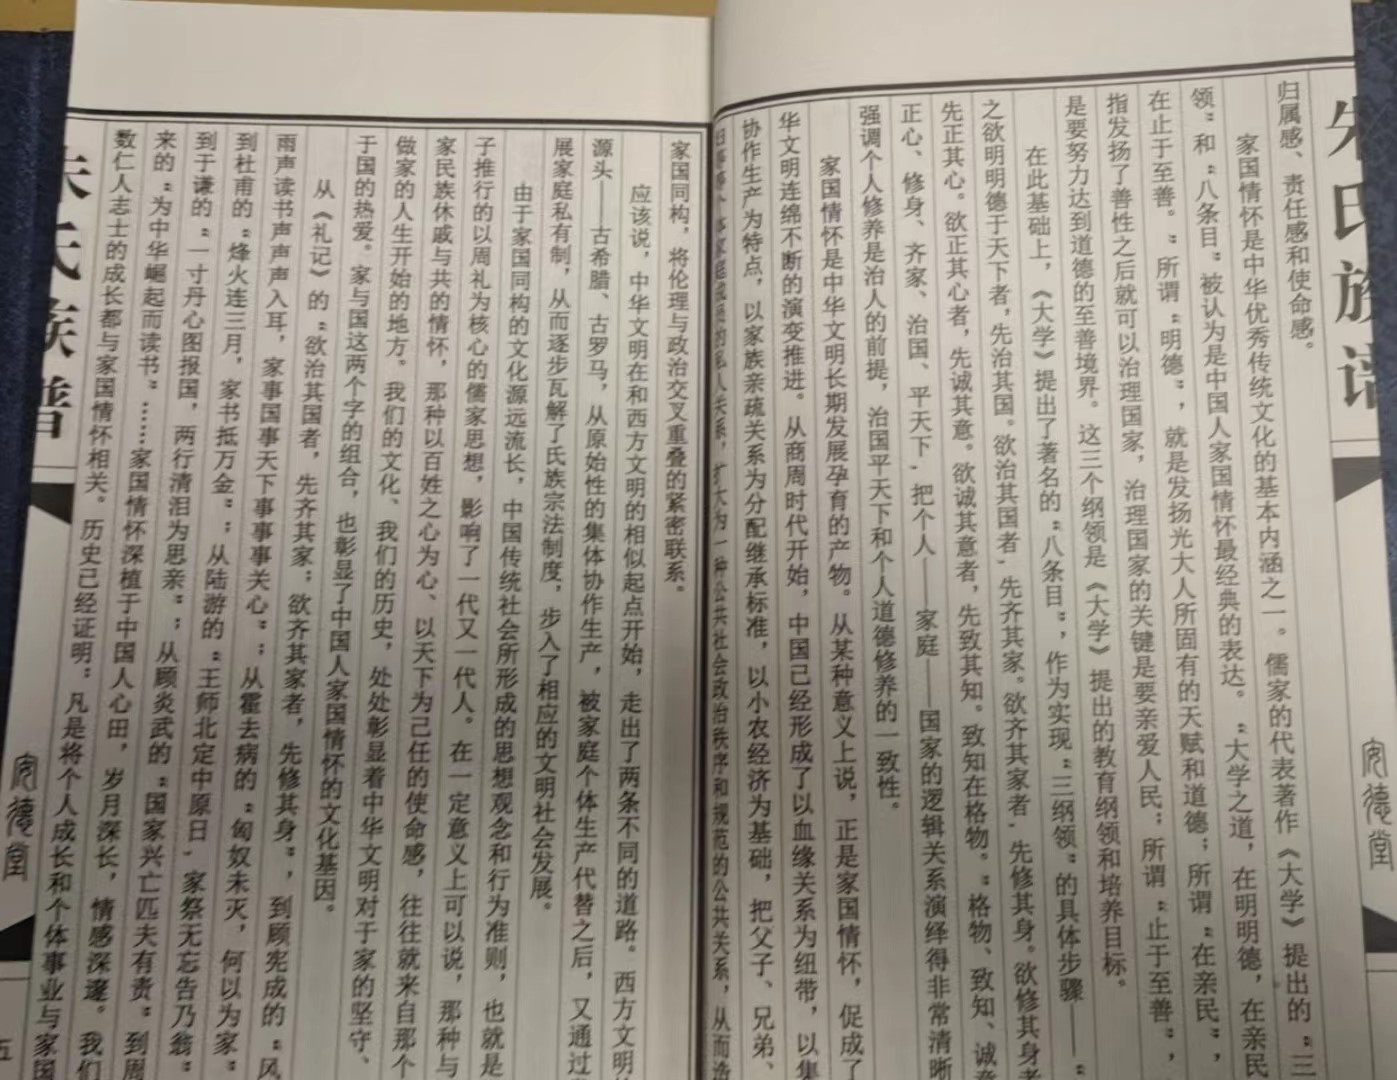 朱氏族谱
安德堂
归属感、责任感和使命感。
家国情怀是中华优秀传统文化的基本内涵之一。儒家的代表著作《大学》提出的“三
领”和“八条目”被认为是中国人家国情怀最经典的表达。“大学之道，在明明德，在亲民
在止于至善。”所谓“明德”，就是发扬光大人所固有的天赋和道德；所谓“在亲民”，
指发扬了善性之后就可以治理国家，治理国家的关键是要亲爱人民；所谓“止于至善”，
是要努力达到道德的至善境界。这三个纲领是《大学》提出的教育纲领和培养目标。
在此基础上，《大学》提出了著名的“八条目”，作为实现“三纲领”的具体步骤——“
之欲明明德于天下者，先治其国。欲治其国者，先齐其家。欲齐其家者，先修其身。欲修其身者
先正其心。欲正其心者，先诚其意。欲诚其意者，先致其知。致知在格物。”格物、致知、诚意
正心、修身、齐家、治国、平天下，把个人——家庭——国家的逻辑关系演绎得非常清晰
强调个人修养是治人的前提，治国平天下和个人道德修养的一致性。
家国情怀是中华文明长期发展孕育的产物。从某种意义上说，正是家国情怀，促成了
华文明连绵不断的演变推进。从商周时代开始，中国已经形成了以血缘关系为纽带，以集
协作生产为特点，以家族亲疏关系为分配继承标准，以小农经济为基础，把父子、兄弟、
家庭成员的私人关系，扩大为一种公共社会政治秩序和规范的公共关系，从而造
家国同构，将伦理与政治交叉重叠的紧密联系。
应该说，中华文明在和西方文明的相似起点开始，走出了两条不同的道路。西方文明
源头——古希腊、古罗马，从原始性的集体协作生产，被家庭个体生产代替之后，又通过
展家庭私有制，从而逐步瓦解了氏族宗法制度，步入了相应的文明社会发展。
由于家国同构的文化源远流长，中国传统社会所形成的思想观念和行为准则，也就是
子推行的以周礼为核心的儒家思想，影响了一代又一代人。在一定意义上可以说，那种与
家民族休戚与共的情怀，那种以百姓之心为心、以天下为己任的使命感，往往就来自那个
做家的人生开始的地方。我们的文化、我们的历史，处处彰显着中华文明对于家的坚守、
于国的热爱。家与国这两个字的组合，也彰显了中国人家国情怀的文化基因。
从《礼记》的“欲治其国者，先齐其家；欲齐其家者，先修其身”，到顾宪成的“风
雨声读书声声声入耳，家事国事天下事事事关心”；从霍去病的“匈奴未灭，何以为家”
到杜甫的“烽火连三月，家书抵万金”；从陆游的“王师北定中原日，家祭无忘告乃翁”
到于谦的“一寸丹心图报国，两行清泪为思亲”；从顾炎武的“国家兴亡匹夫有责”到周
来的“为中华崛起而读书”……家国情怀深植于中国人心田，岁月深长，情感深邃。我们
数仁人志士的成长都与家国情怀相关。历史已经证明，凡是将个人成长和个体事业与家国
朱氏族谱
安德堂
五